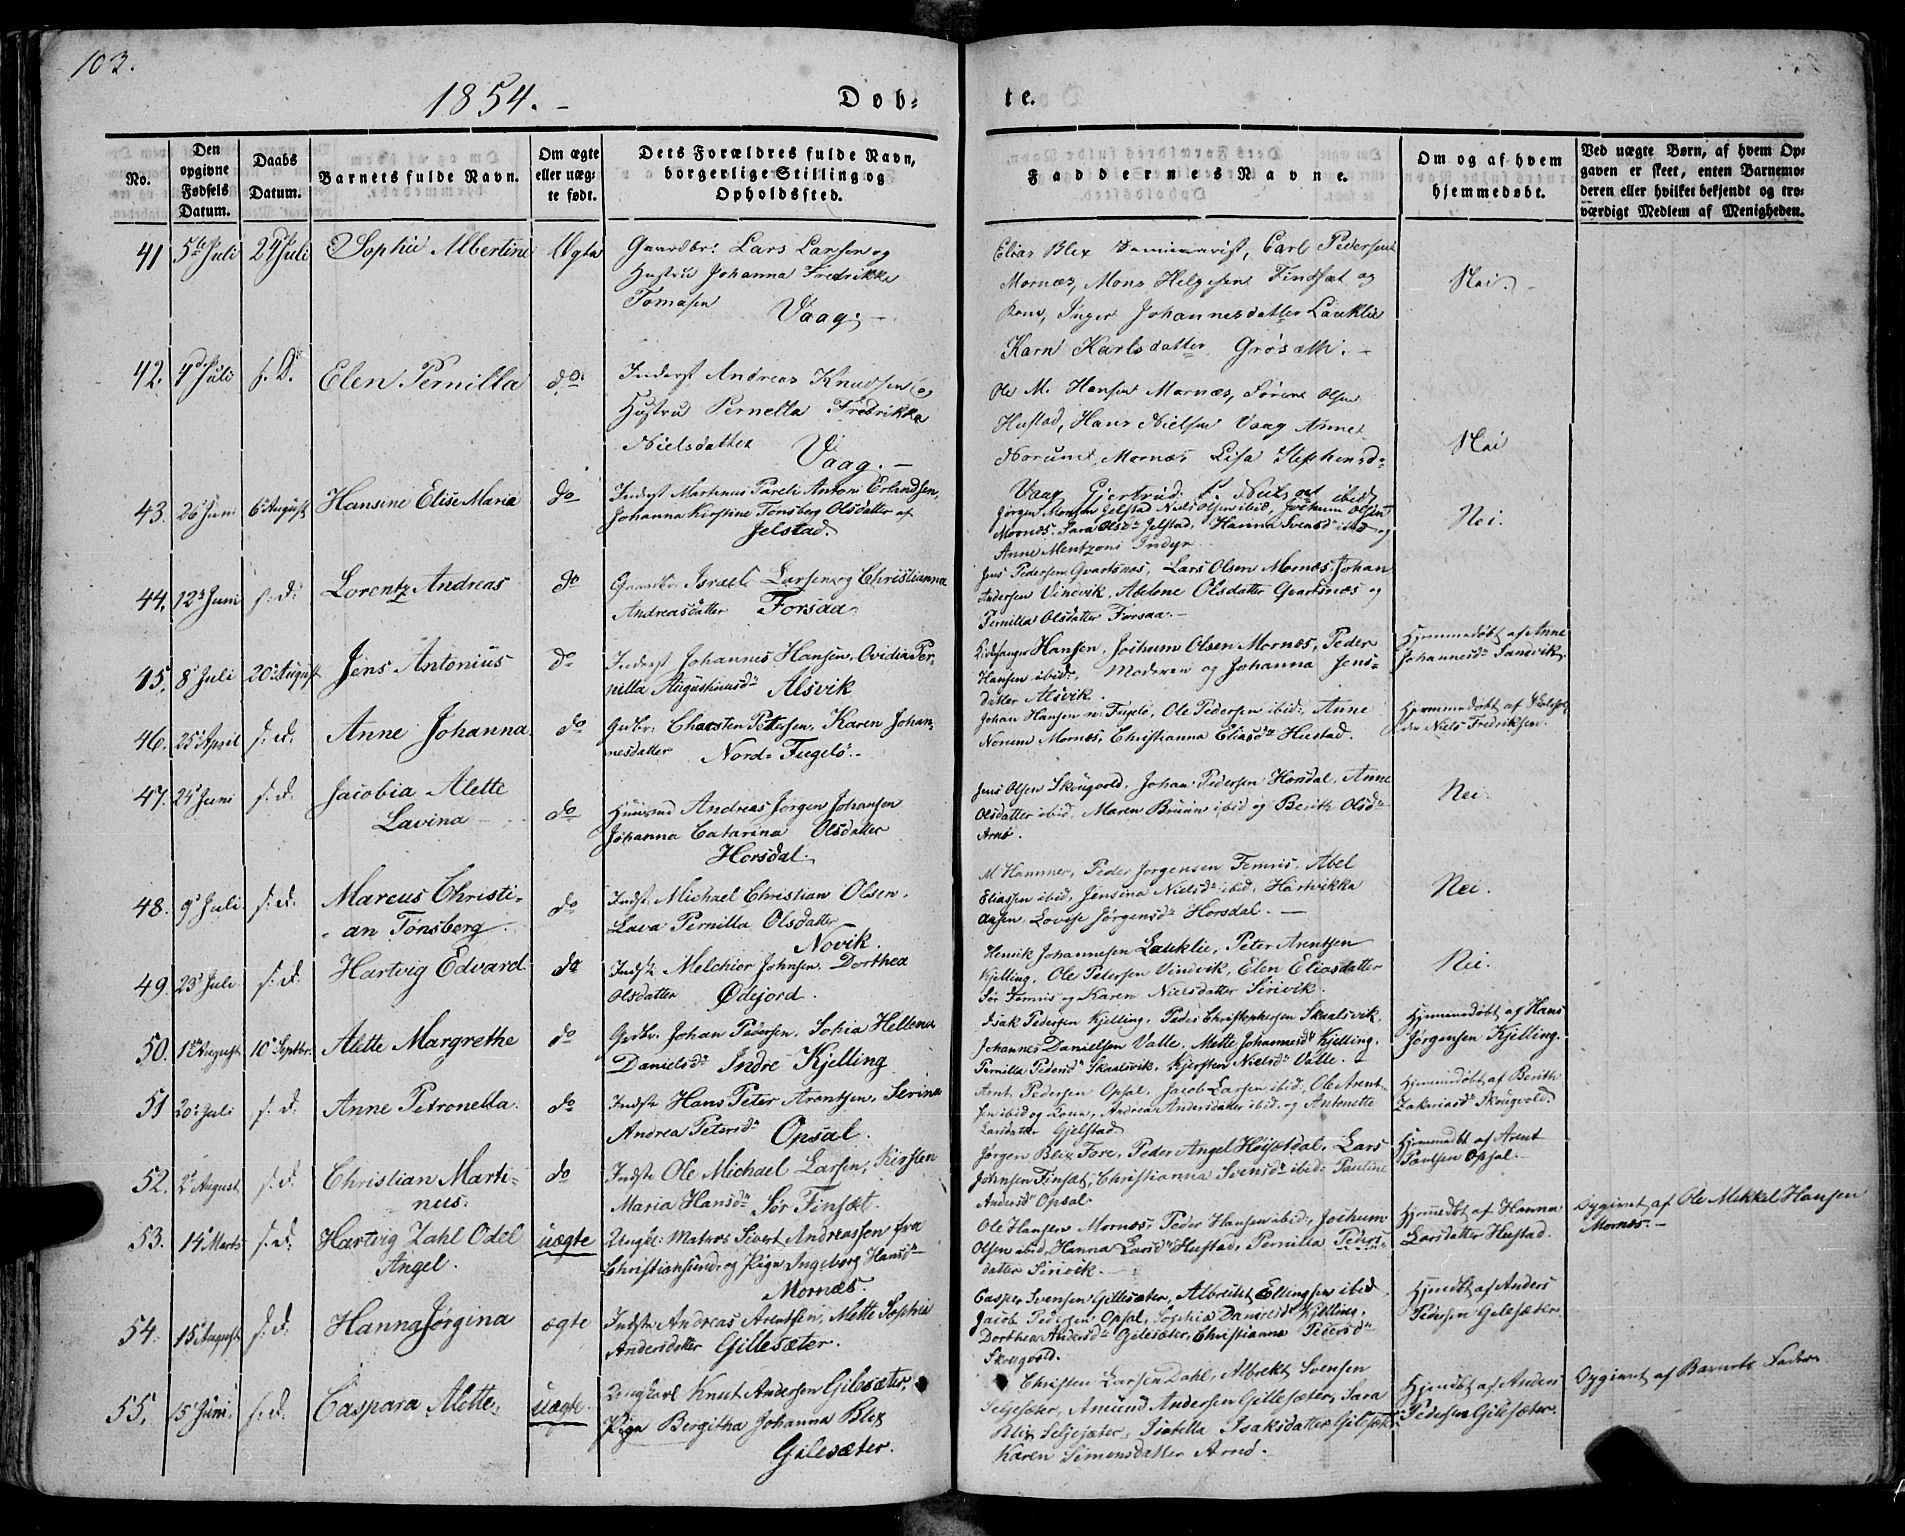 103.
1854. -
Dob-
te.
No.
Den opgivne Fødsels Datum.
Daabs Datum.
Barnets fulde Navn.
Om ægte eller uægte født.
Dets Forældres fulde Navn, borgerlige Stilling og Opholdssted.
Faddernes Navne.
Om og af hvem hjemmedøbt.
Ved uægte Børn, af hvem Opgaven er skeet, enten Barnemoderen eller hvilket bekjendt og troværdigt Medlem af Menigheden.
41 5te Juli Sophie Albertine Ægte
Gaardbr: Lars Larsen og
Hustru Johanna Fredrikke
Tomasen Vaag. -
Elias Blix Seminarist, Carl Pedersen
Mornæs, Mons Helgesen Finsæt og
Kone, Inger Johannesdatter Lauklie
Karn Karlsdatter Grøsæth. -
Nei.
42. Juli s. D. Elen Pernilla do.
Inderst Andreas Knudsen og
Hustru Pernella Fredrikka
Nielsdatter Vaag. -
Ole M. Hansen Mornæs, Sørene Olsen
Hustad, Hans Nielsen Vaag Anne
Norum Mornæs Lisa Stephensd.
Vaag Gjertrud ibid
Nei
43. 26 Juni 6 August Hansine Elise Maria do
Inderst Martinus Pareli Antoni Erlandsen,
Johanna Kirstine Tønsberg Olsdatter af
Jelstad.
Jørgen Monsen Jelstad Niels Olsen ibid, Jochum Olsen
Mornæs, Sara Olsdr Jelstad, Hanna Svensdr ibid og
Anne Mentzoni Indyr
Nei.
44. 12 Juni s. d. Lorentz Andreas do
Gaardbr. Israel Larsen og Christianna
Andreasdatter Forsaa.
Jens Pedersen Qvartsnæs, Lars Olsen Mornæs, Johan
Andersen Vindvik, Abelone Olsdatter Qvartsnæs og
Pernilla Olsdatter Forsaa. -
45. 8 Juli 20 August Jens Antonius do
Inderst Johannes Hansen, Ovidia Per-
nilla Augustinusdr Alsvik
Kirkesanger Hansen, Jochum Olsen Mornæs, Peder
Hansen ibid, Moderen og Johanna Jens-
datter Alsvik.
Hjemmedøbt af Anne
Johannesdr Sandvik.
46. 25 April s. d. Anne Johanna do
Gdbr. Charsten Petersen, Karen Johan-
nesdatter Nord-Fugelø. -
Johan Hansen n. Fugelø, Ole Pedersen ibid, Anne
Norum Mornæs, Christianna Eliasdr Hustad.
Hjemmedøbt af
Niels Fredriksen.
47. 24 Juni s. d. Jacobia Alette
Lavina do
Huusmd Andreas Jørgen Johansen
Johanna Catarina Olsdatter
Horsdal.
Jens Olsen Skougvold, Johan Pedersen Horsdal, Anne
Olsdatter ibid, Maren Bruun ibid og Berith Olsdr
Arnø.
Nei.
48. 9 Juli s. d. Marcus Christi-
an Tønsberg do
Indst. Michael Christian Olsen,
Lava Pernilla Olsdatter
Novik.
M Hammer, Peder Jørgensen Femris, Abel
Eliassen ibid, Jensina Nielsdr ibid, Hartvikka
Lovise Jørgensdr Horsdal. -
Nei.
49. 23 Juli s. d. Hartvig Edvard do
Indst. Melchior Johnsen, Dorthea
Olsdatter Ødejord.
Henrik Johannesen Lauklie, Peter Arentsen
Kjelling, Ole Pedersen Vindvik, Elen Eliasdatter
Sør Femris og Karen Nielsdatter Sirivik.
Nei.
50. August 10 Septbr. Alette Margrethe do
Gdbr. Johan Pedersen, Sohia Hellena
Danielsdr Indre Kjelling
Isak Pedersen Kjelling, Peder Christophersen Skaalsvik,
Johannes Danielsen Valle, Mette Johannesdr Kjelling,
Pernilla Pedersdr Skaalsvik, Kjersten Nielsdr Valle.
Hjemmedøbt af Hans
Jørgensen Kjelling.
51 20 Juli s. d. Anne Petronella do
Indst. Hans Peter Arentsen, Serina
Andrea Petersdr Opsal.
Arnt Pedersen Opsal, Jacob Larsen ibid, Ole Arent-
sen ibid og Kone, Andrea Andersdatter ibid, og Antonette
Larsdatter Gjelstad
Hjemmedøbt af Berith
Zakariasdr Skougvold.
52. 2 August s. d. Christian Marti-
nus. do
Indst. Ole Michael Larsen, Kirsten
Maria Hansdr Sør Finsæt.
Jørgen Blix Fore, Peder Angel Høistdal, Lars
Johnsen Finsæt, Christianna Svensdr ibid, Pauline
Andersdr Opsal.
Hjemmedbt af Arent
Paulsen Opsal. -
53. 14 Marts s. d. Hartvig Zahl Odel
Angel. uægte
Ungk. Matros Sivert Andreassen fra
Christiansund, og Pige Ingeborg Hansdr
Mornæs.
Ole Hansen Mornæs, Peder Hansen ibid, Jochum
Olsen ibid, Hanna Larsdr Hustad, Pernilla Peders-
datter Sirivik. -
Hjemmedbt af Hanna
Larsdatter Hustad.
Opgivet af Ole Mikkel Hansen
Mornæs. -
54. 15 August s. d. Hanna Jørgina ægte
Indst. Andreas Arentsen, Mette Sophia
Andersdatter Gillesæter.
Casper Svensen Gillesæter, Albreikt Ellingsen ibid
Jacob Pedersen Opsal, Sophia Danielsdr Kjelling,
Dorthea Andersdr Gilesæter, Christianna Pedersdr
Skougvold.
Hjmdbt af Anders
Pedersen Gilesæter.
55. 5 Juni. s. d. Caspara Alette. uægte.
Ungkarl Knut Andersen Gilesæter,
Pige Bergitha Johanna Blix
Gilesæter.
Christen Larsen Dahl, Albrekt Svensen
Seljesæter, Amund Andersen Gillesæter, Sara
Blix Seljesæter, Isabella Isaksdatter Gilesæter
Karen Simonsdatter Arnø.
Hjmdbt af Anders
Pedersen Gilesæter.
Opgivet af Barnets Fader.